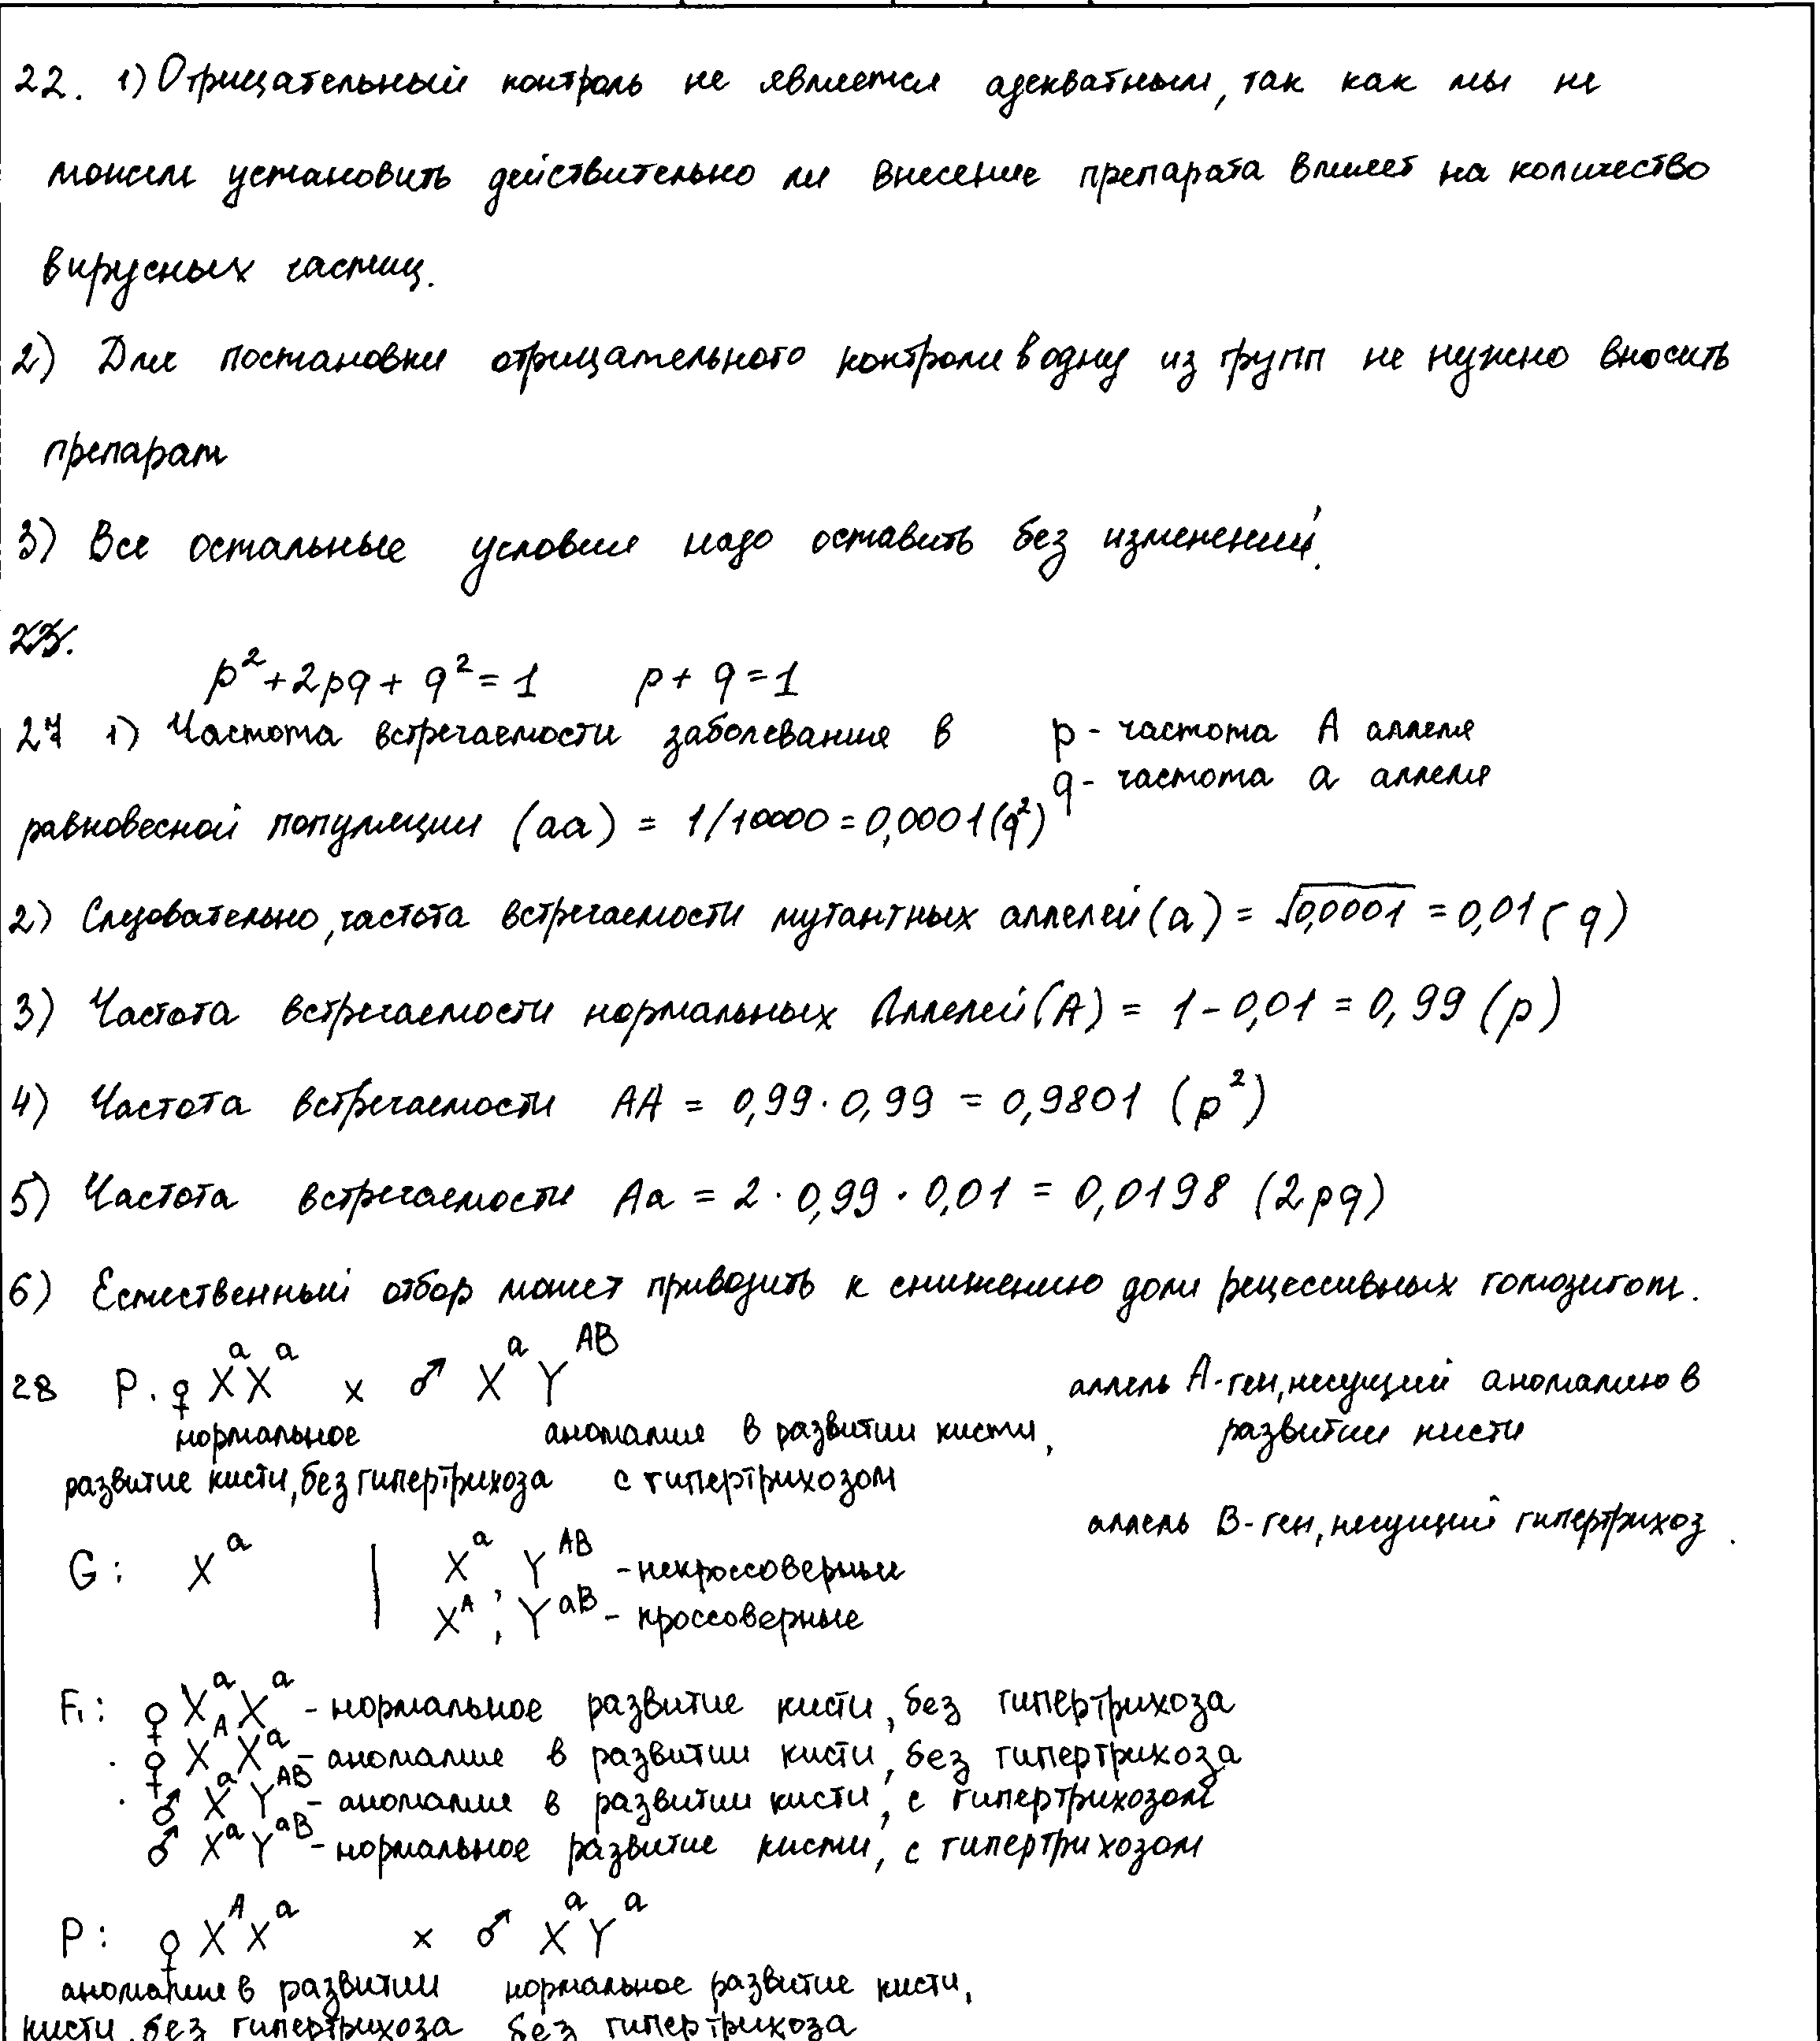 22. 1) Отрицательный контроль не является адекватным, так как мы не
можем установить действительно ли внесение препарата влияет на количество
вирусных частиц.
2) Для постановки отрицательного контроля в одну из групп не нужно вносить
препарат
3) Все остальные условия надо оставить без изменений.
23.
p² + 2pq + q² = 1 p + q = 1
27 1) Частота встречаемости заболевания в p - частота A аллеля
q - частота a аллеля
равновесной популяции (aa) = 1/10000 = 0,0001 (q²)
2) Следовательно, частота встречаемости мутантных аллелей (a) = √0,0001 = 0,01 (q)
3) Частота встречаемости нормальных Аллелей (A) = 1 - 0,01 = 0,99 (p)
4) Частота встречаемости AA = 0,99 · 0,99 = 0,9801 (p²)
5) Частота встречаемости Aa = 2 · 0,99 · 0,01 = 0,0198 (2pq)
6) Естественный отбор может приводить к снижению доли рецессивных гомозигот.
28 P. ♀ XᵃXᵃ x ♂ XᵃYᴬᴮ аллель A - ген, несущий аномалию в
нормальное аномалия в развитии кисти, развитии кисти
развитие кисти, без гипертрихоза с гипертрихозом
аллель B - ген, несущий гипертрихоз.
G: Xᵃ | Xᵃ, Yᴬᴮ - некроссоверные
Xᴬ; Yᵃᴮ - кроссоверные
F₁: ♀ XᵃXᵃ - нормальное развитие кисти, без гипертрихоза
♀ XᴬXᵃ - аномалия в развитии кисти, без гипертрихоза
♂ XᵃYᴬᴮ - аномалия в развитии кисти, с гипертрихозом
♂ XᵃYᵃᴮ - нормальное развитие кисти, с гипертрихозом
P: ♀ XᴬXᵃ x ♂ XᵃYᵃ
аномалия в развитии нормальное развитие кисти,
кисти, без гипертрихоза без гипертрихоза